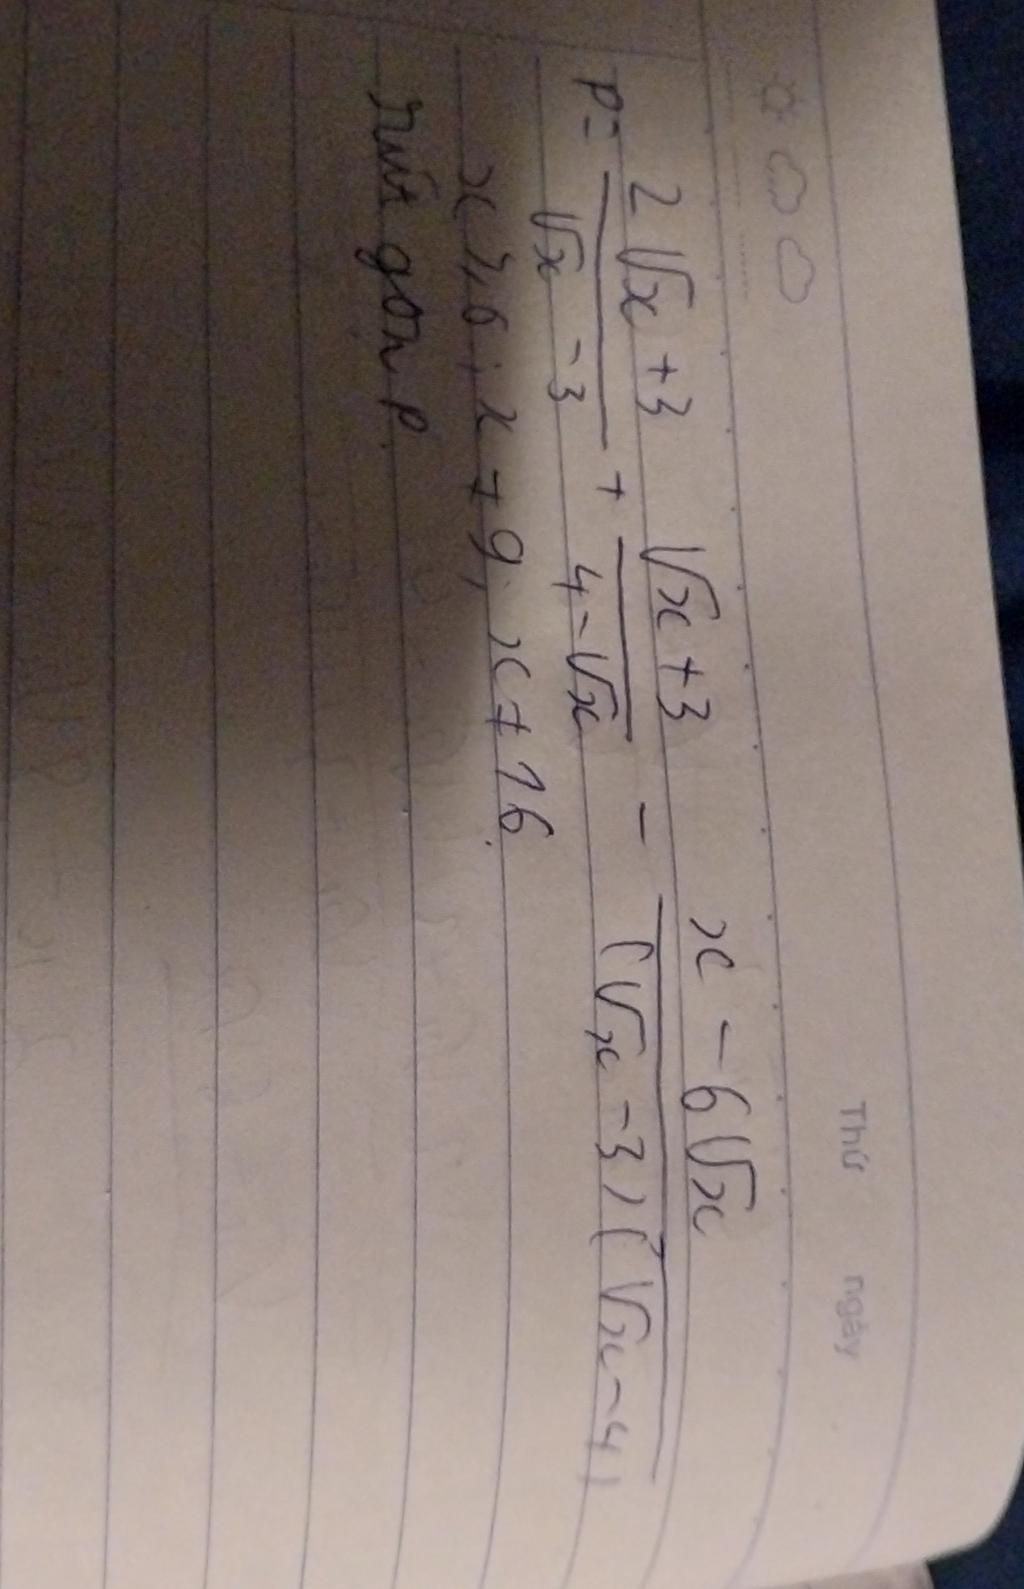 Thứ ngày
P = \frac{2\sqrt{x}+3}{\sqrt{x}-3} + \frac{\sqrt{x}+3}{4-\sqrt{x}} - \frac{x-6\sqrt{x}}{(\sqrt{x}-3)(\sqrt{x}-4)}
x ≥ 0; x ≠ 9; x ≠ 16
rút gọn P